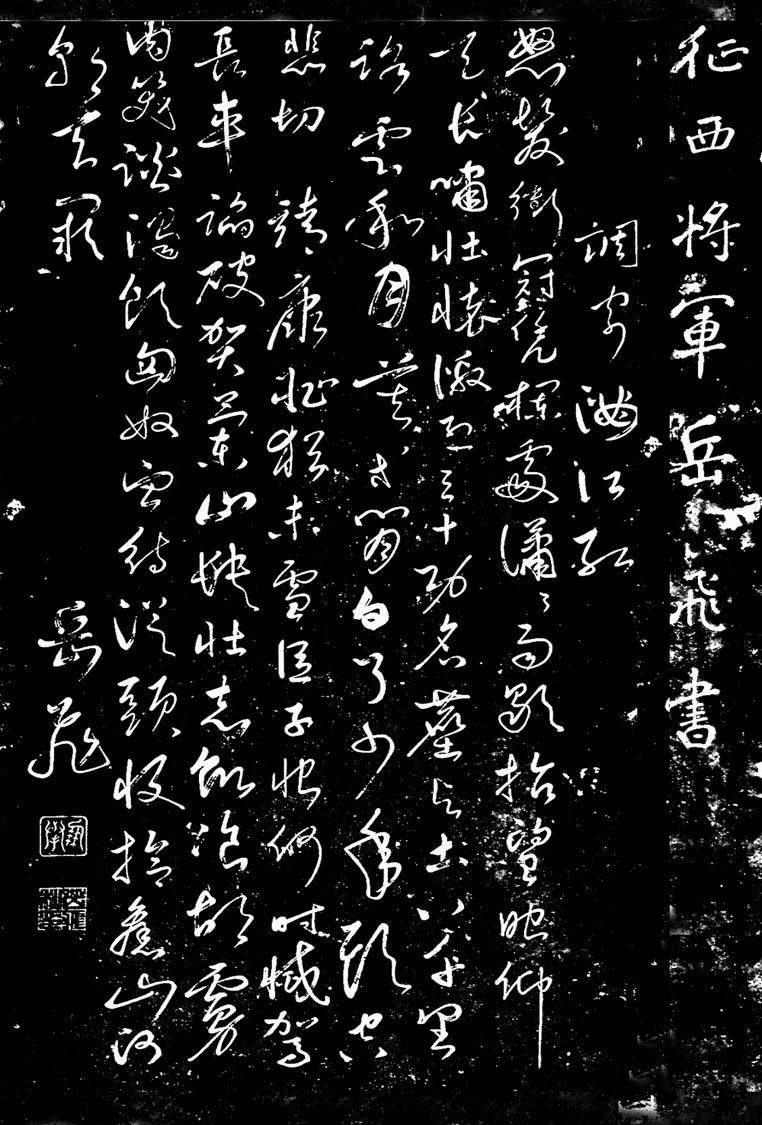 征西將軍岳飛書
調寄滿江紅
怒髮衝冠凭欄處瀟瀟雨歇抬望眼仰
天長嘯壯懷激烈三十功名塵與土八千里
路雲和月莫等閒白了少年頭空
悲切靖康恥猶未雪臣子恨何時滅駕
長車踏破賀蘭山缺壯志飢餐胡虜
肉笑談渴飲匈奴血待從頭收拾舊山河
朝天闕
岳飛